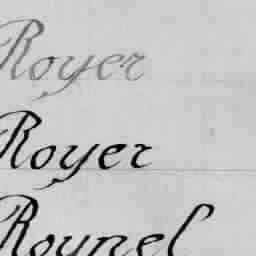 Royer
Royer
Roynel